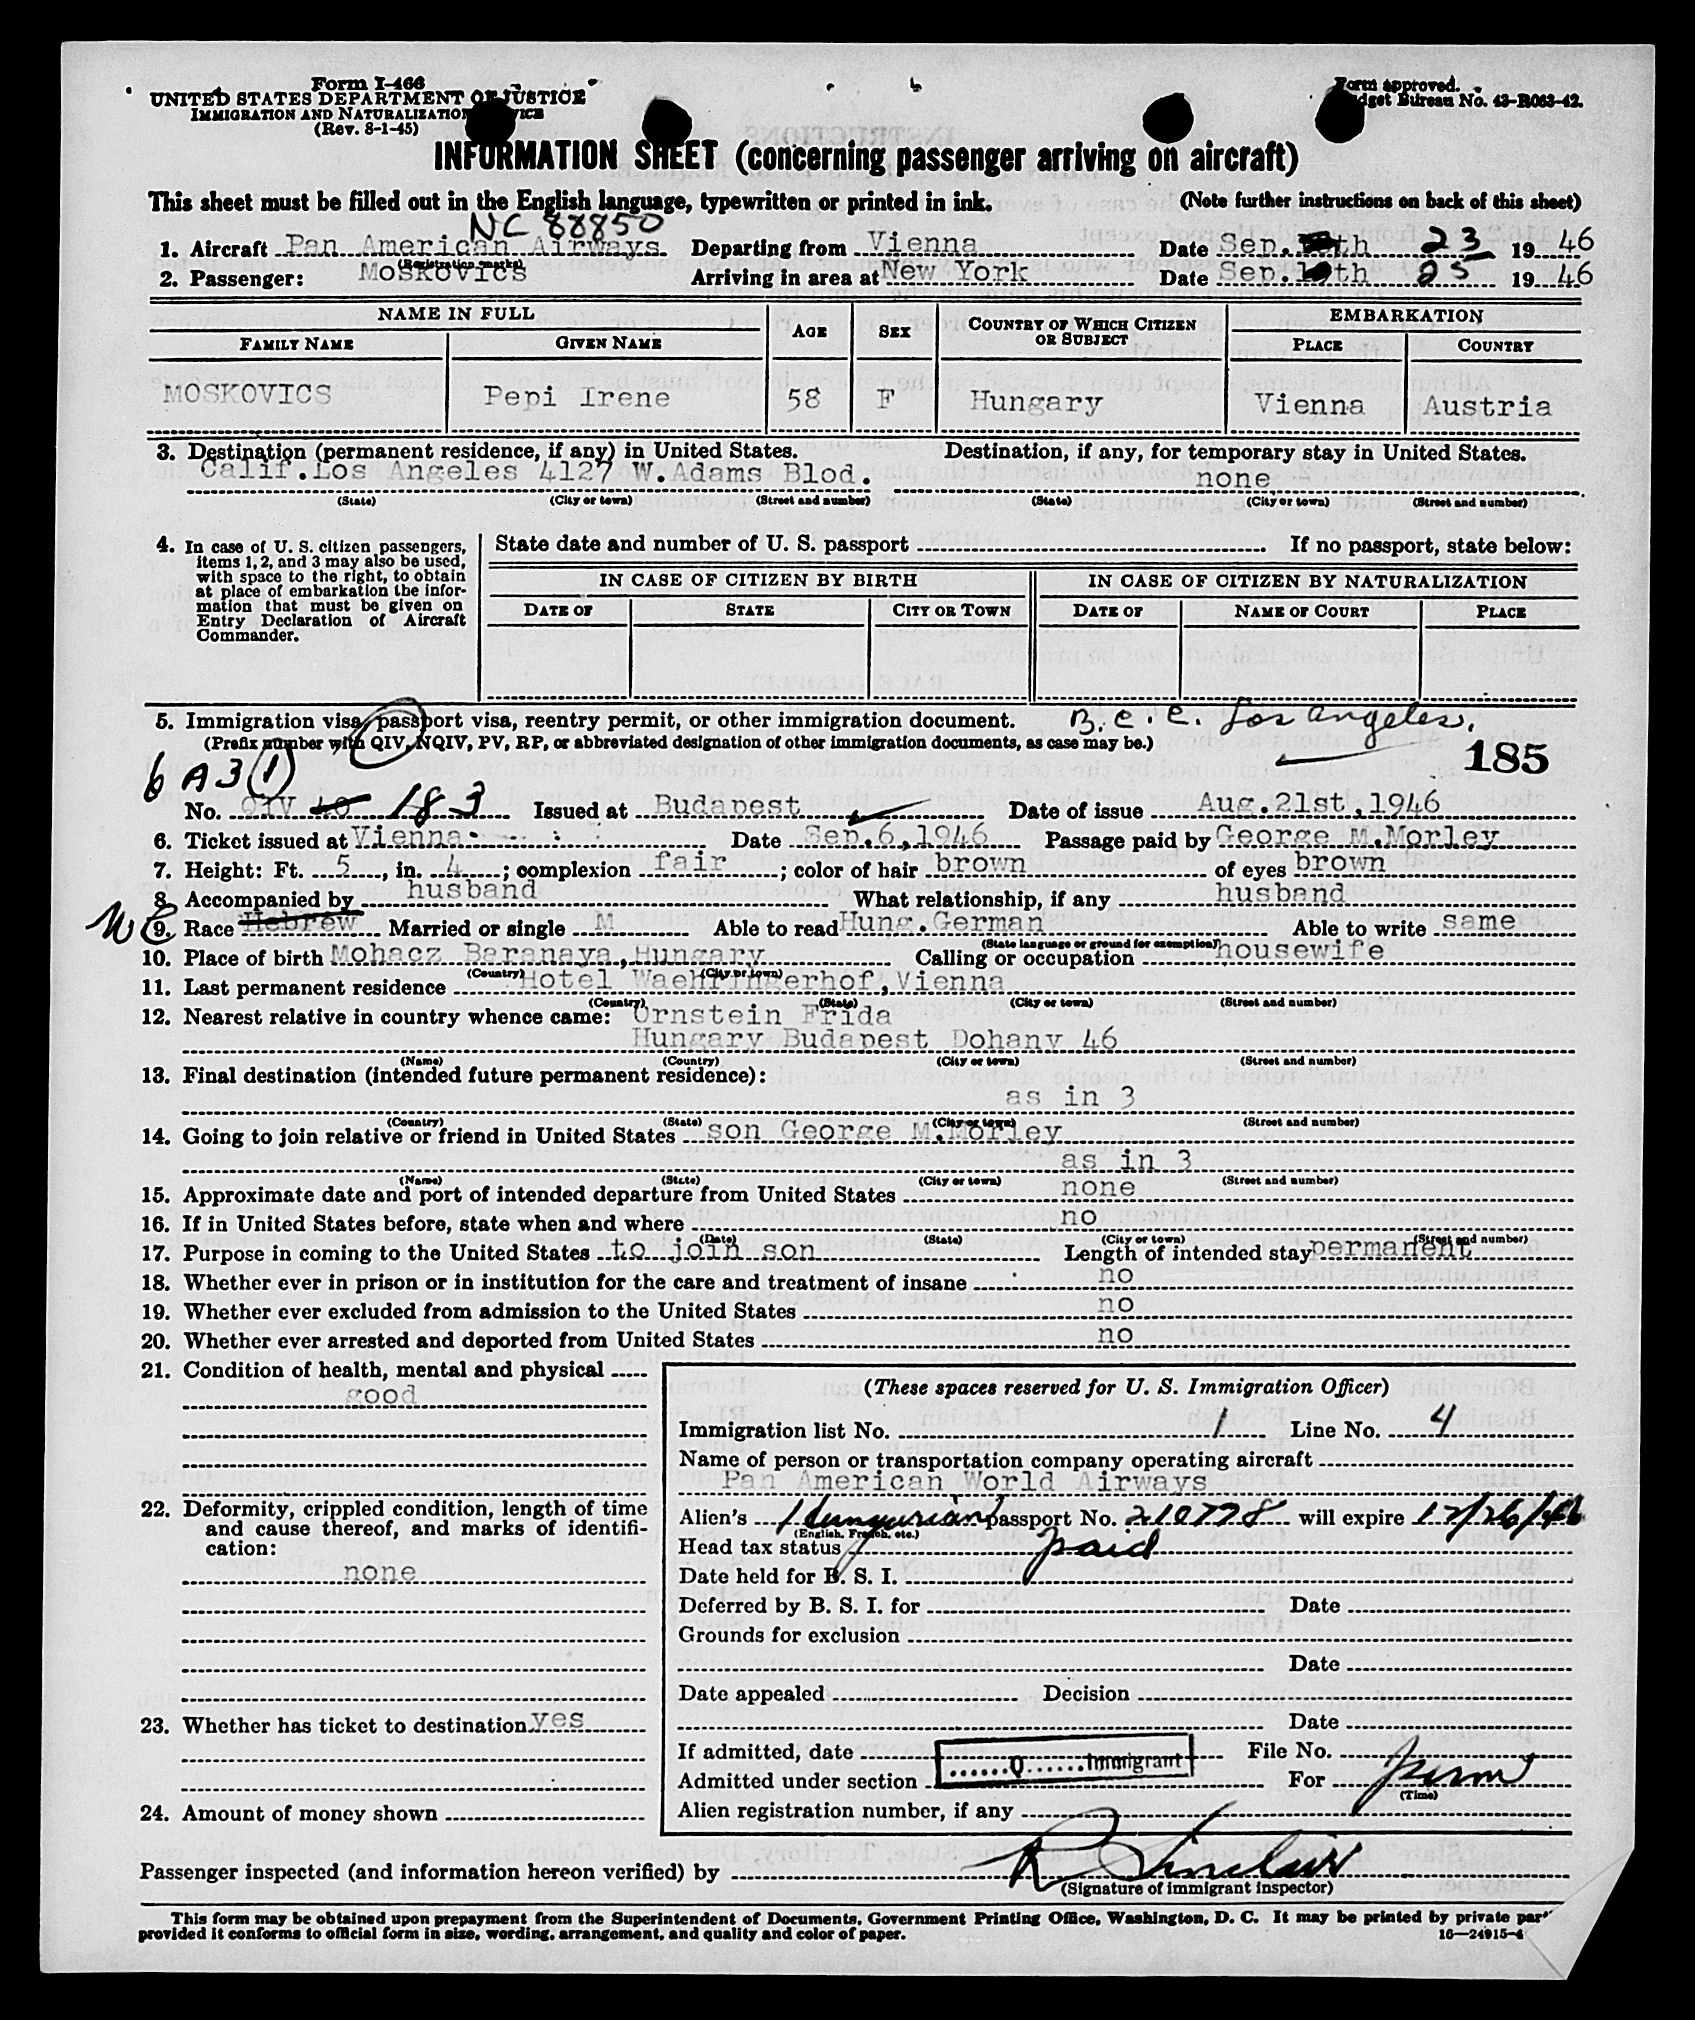 Form I-466
UNITED STATES DEPARTMENT OF JUSTICE
IMMIGRATION AND NATURALIZATION SERVICE
(Rev. 8-1-45)
Form approved.
Budget Bureau No. 43-R063-42.
INFORMATION SHEET (concerning passenger arriving on aircraft)
This sheet must be filled out in the English language, typewritten or printed in ink. (Note further instructions on back of this sheet)
NC 88850
1. Aircraft Pan American Airways Departing from Vienna Date Sep. th 23 1946
(Registration marks)
2. Passenger: MOSKOVICS Arriving in area at New York Date Sep. th 25 1946
NAME IN FULL AGE SEX COUNTRY OF WHICH CITIZEN OR SUBJECT EMBARKATION
FAMILY NAME GIVEN NAME PLACE COUNTRY
MOSKOVICS Pepi Irene 58 F Hungary Vienna Austria
3. Destination (permanent residence, if any) in United States. Destination, if any, for temporary stay in United States.
Calif. Los Angeles 4127 W. Adams Blod. none
(State) (City or town) (Street and number) (State) (City or town) (Street and number)
4. In case of U. S. citizen passengers, items 1, 2, and 3 may also be used, with space to the right, to obtain at place of embarkation the information that must be given on Entry Declaration of Aircraft Commander.
State date and number of U. S. passport If no passport, state below:
IN CASE OF CITIZEN BY BIRTH IN CASE OF CITIZEN BY NATURALIZATION
DATE OF STATE CITY OR TOWN DATE OF NAME OF COURT PLACE
5. Immigration visa, passport visa, reentry permit, or other immigration document. B. C. C. Los Angeles.
(Prefix number with QIV, NQIV, PV, RP, or abbreviated designation of other immigration documents, as case may be.)
185
6 A 3 (1)
No. QIV 40 183 Issued at Budapest Date of issue Aug. 21st, 1946
6. Ticket issued at Vienna Date Sep. 6, 1946 Passage paid by George M. Morley
7. Height: Ft. 5, in. 4; complexion fair; color of hair brown of eyes brown
8. Accompanied by husband What relationship, if any husband
9. Race Hebrew Married or single M Able to read Hung. German Able to write same
(State language or ground for exemption)
10. Place of birth Mohacz Baranaya, Hungary Calling or occupation housewife
(Country) (City or town)
11. Last permanent residence Hotel Waehringerhof, Vienna
(Country) (State) (City or town) (Street and number)
12. Nearest relative in country whence came: Ornstein Frida
Hungary Budapest Dohany 46
(Name) (Country) (City or town) (Street and number)
13. Final destination (intended future permanent residence):
as in 3
(Country) (State) (City or town) (Street and number)
14. Going to join relative or friend in United States son George M. Morley
as in 3
(Name) (State) (City or town) (Street and number)
15. Approximate date and port of intended departure from United States none
16. If in United States before, state when and where no
(Date) (State) (City or town) (Street and number)
17. Purpose in coming to the United States to join son Length of intended stay permanent
18. Whether ever in prison or in institution for the care and treatment of insane no
19. Whether ever excluded from admission to the United States no
20. Whether ever arrested and deported from United States no
21. Condition of health, mental and physical
good
22. Deformity, crippled condition, length of time and cause thereof, and marks of identification:
none
23. Whether has ticket to destination yes
24. Amount of money shown
(These spaces reserved for U. S. Immigration Officer)
Immigration list No. 1 Line No. 4
Name of person or transportation company operating aircraft
Pan American World Airways
Alien's Hungarian passport No. 210778 will expire 12/26/46
(English, French, etc.)
Head tax status paid
Date held for B. S. I.
Deferred by B. S. I. for Date
Grounds for exclusion
Date
Date appealed Decision
Date
If admitted, date File No.
Q Immigrant
Admitted under section For perm
(Time)
Alien registration number, if any
Passenger inspected (and information hereon verified) by R Sinclair
(Signature of immigrant inspector)
This form may be obtained upon prepayment from the Superintendent of Documents, Government Printing Office, Washington, D. C. It may be printed by private
provided it conforms to official form in size, wording, arrangement, and quality and color of paper.
16—24915-4